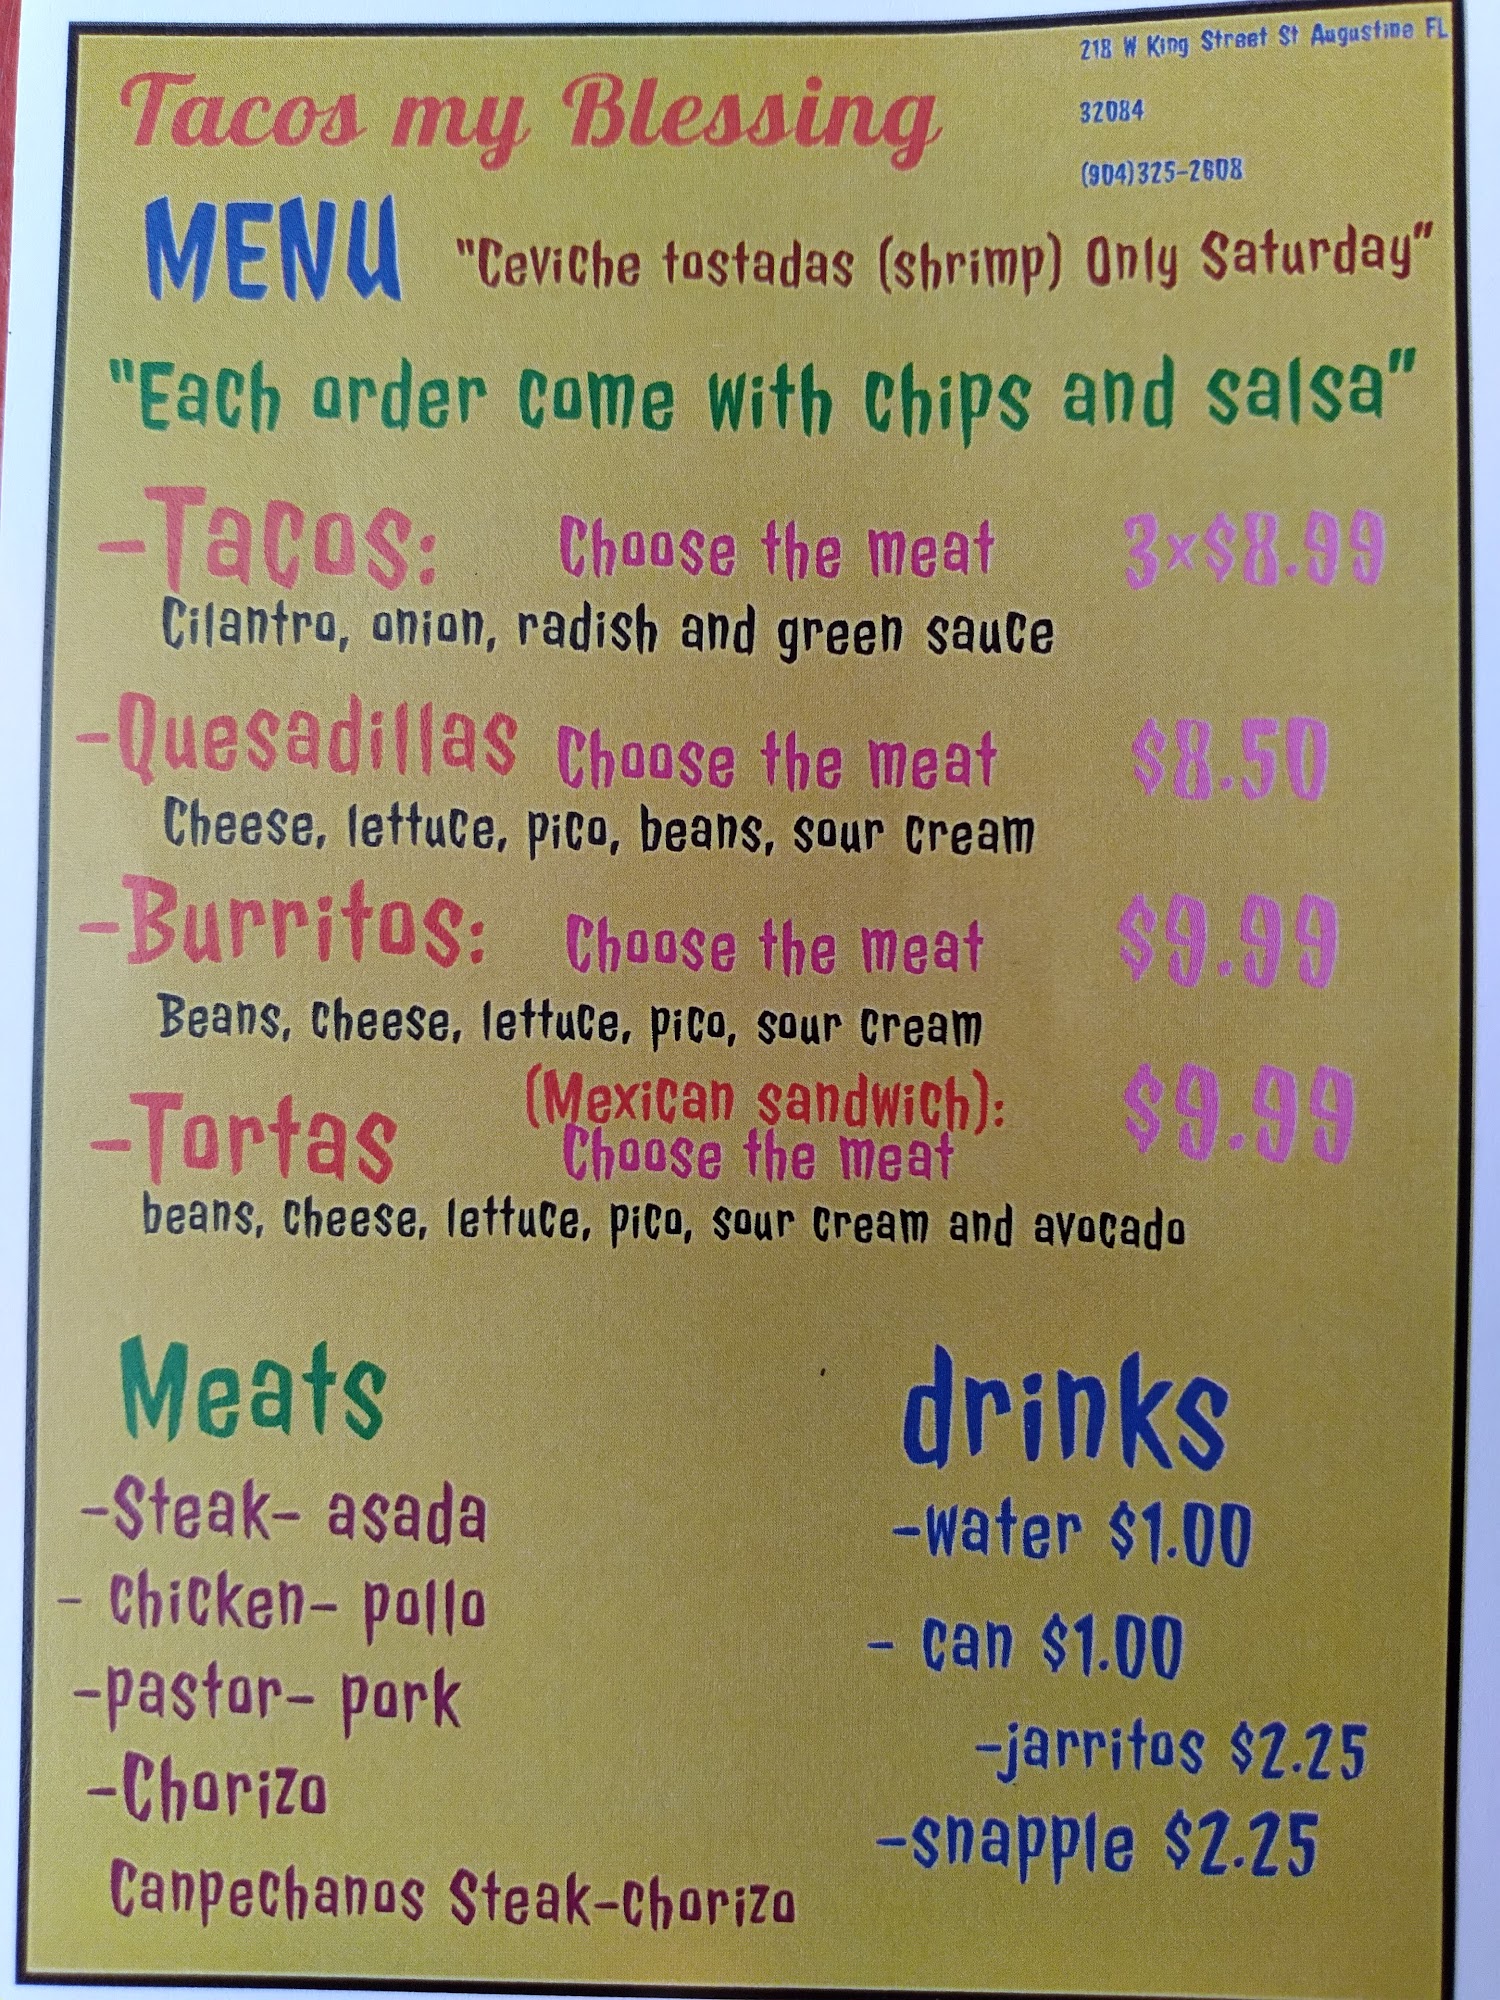 218 W King Street St Augustine FL
32084
(904)325-2608
Tacos my Blessing
MENU
"Ceviche tostadas (shrimp) Only Saturday"
"Each order come with chips and salsa"
-Tacos: Choose the meat 3x$8.99
Cilantro, onion, radish and green sauce
-Quesadillas Choose the meat $8.50
Cheese, lettuce, pico, beans, sour cream
-Burritos: Choose the meat $9.99
Beans, cheese, lettuce, pico, sour cream
-Tortas (Mexican sandwich): $9.99
Choose the meat
beans, cheese, lettuce, pico, sour cream and avocado
Meats
-Steak- asada
- chicken- pollo
-pastor- pork
-Chorizo
Canpechanos Steak-Chorizo
drinks
-water $1.00
- can $1.00
-jarritos $2.25
-snapple $2.25